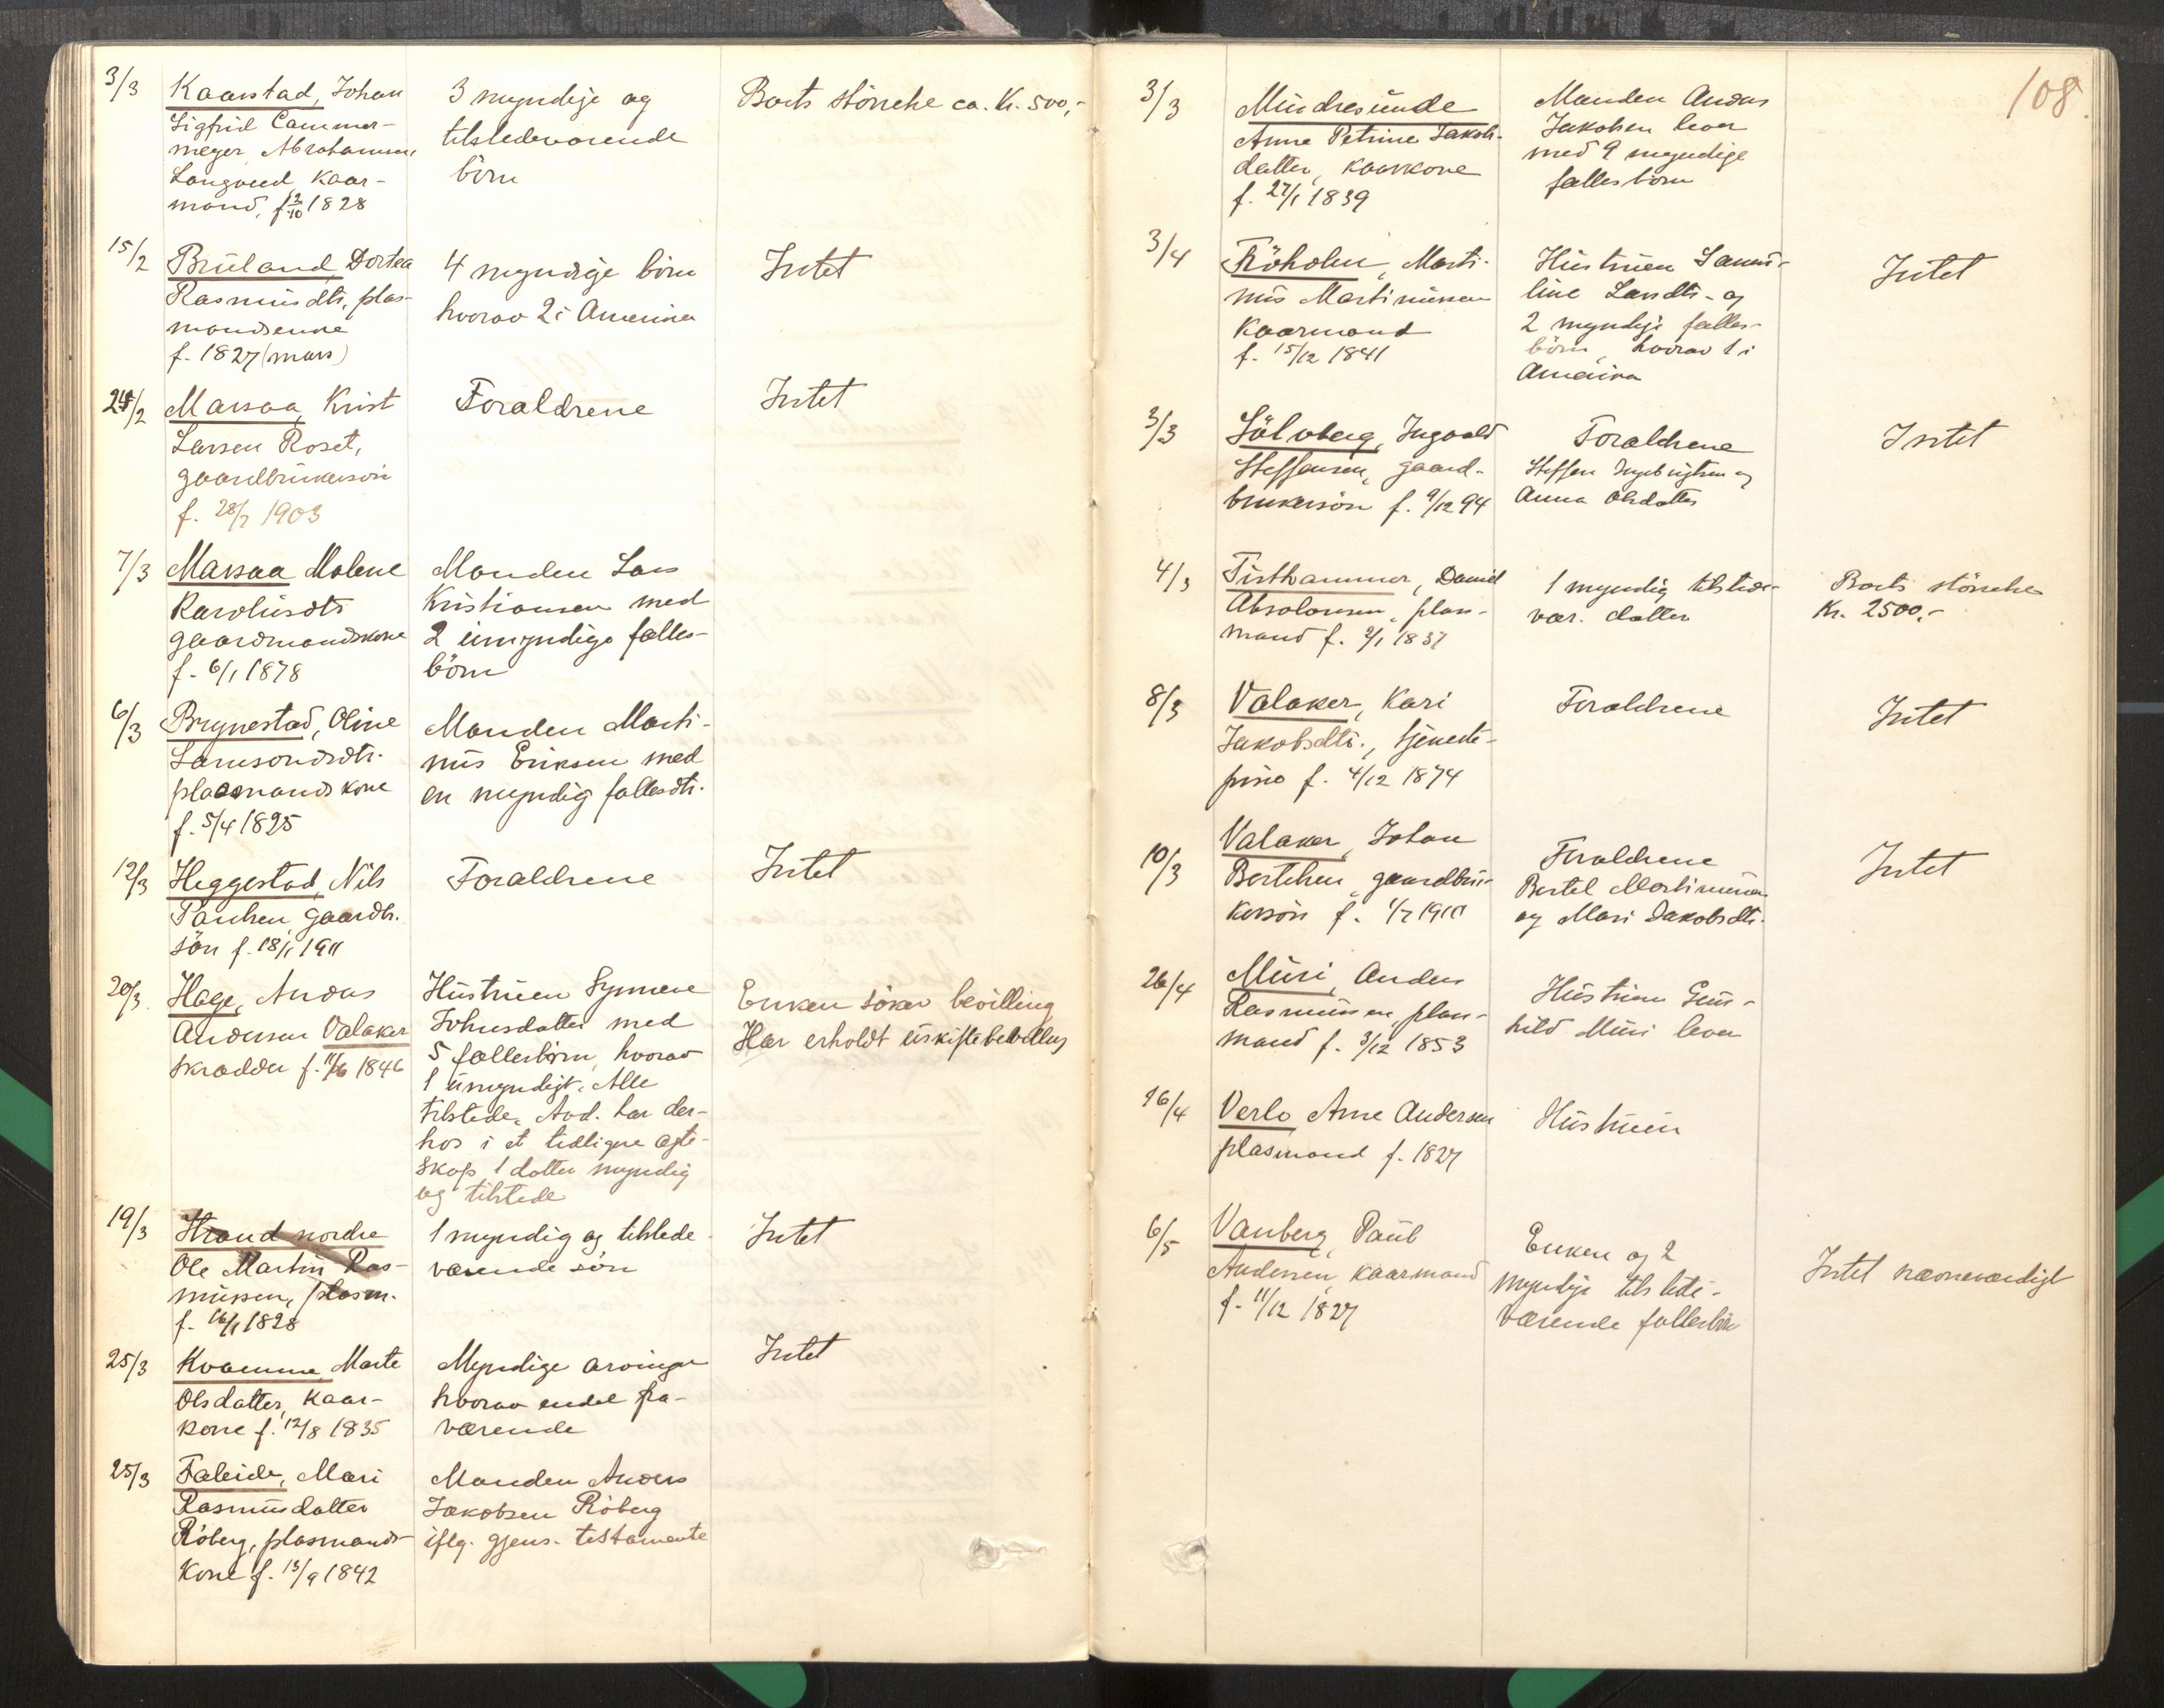 3/3
Kaarstad, Johan
Sigfrid Cammer-
meyer Abrahamsen
Langved, Kaar-
mand, f 2/10 1828
3 myndige og
tilstedeværende
börn
Boets störrelse ca. Kr. 500,-
15/2
Bruland, Dortea
Rasmusdtr, plas-
mandsenke
f. 1827 (mars)
4 myndige börn
hvorav 2 i Amerika
Intet
25/2
Marsaa, Krist
Larsen Roset,
gaardbrukersön
f. 28/7 1903
Foraldrene
Intet
7/3
Marsaa Malene
Karolusdtr
gaardmandskone
f. 6/1 1878
Manden Lars
Kristiansen med
2 umyndige fælles-
börn
6/3
Brynestad, Oline
Samsonsdtr.
plassmands kone
f. 5/4 1825
Manden Marti-
nus Eriksen med
en myndig fællesdtr.
12/3
Heggestad, Nils
Paulsen, gaardbr.
sön f. 18/1 1911
Foraldrene
Intet
20/3
Hage, Anders
Andersen Valaker
Skrædder f. 11/6 1846
Hustruen Synneve
Johnsdatter med
5 fællesbörn, hvorav
1 umyndigt. Alle
tilstede. Avd. har der-
hos i et tidligere ægte-
skap 1 datter myndig
og tilstede
Enken söker bevilling
Har erholdt uskiftebevilling
19/3
Strand nordre
Ole Martin Ras-
mussen, plasm.
f. 16/1 1828
1 myndig og tilstede-
værende sön
Intet
25/3
Kvamme, Marte
Olsdatter, Kaar-
kone f. 12/8 1835
Myndige arvinger
hvorav endel fra-
værende
Intet
25/3
Faleide, Mari
Rasmusdatter
Röberg, plasmands-
Kone f. 13/9 1842
Manden Anders
Jakobsen Röberg
iflg. gjens. testamente
108.
3/3
Mindresunde
Anne Petrine Jakob-
datter, Kaarkone
f. 27/1 1839
Manden Anders
Jakobsen lever
med 9 myndige
fællesbörn
3/4
Röholm, Marti-
nus Martinussen
Kaarmand
f. 15/12 1841
Hustruen Samu-
line Larsdtr. og
2 myndige fælles-
börn, hvorav 1 i
Amerika
Intet
3/3
Sölvberg, Ingvald
Steffensen, gaard-
brukersön f. 9/12 94
Foraldrene
Steffen Ingebrigtsen og
Anna Olsdatter
Intet
4/3
Tisthammer, Daniel
Absolonsen, plas-
mand f. 2/1 1837
1 myndig tilstede-
vær. datter
Boets störrelse
Kr. 2500,-
8/3
Valaker, Kari
Jakobsdtr., tjeneste-
pike f. 4/12 1874
Foraldrene
Intet
10/3
Valaker, Johan
Bertelsen, gaardbru-
kersön f. 1/7 1910
Foraldrene
Bertel Martinussen
og Mari Jakobsdtr.
Intet
26/4
Muri, Anders
Rasmussen, plas-
mand f. 3/12 1853
Hustruen Gun-
hild Muri lever
16/4
Verlo, Arne Andersen
plasmand f. 1827
Hustruen
6/5
Vanberg, Paul
Andersen, Kaarmand
f. 11/12 1827
Enken og 2
myndige tilstede-
værende fællesbörn
Intet nævneværdigt